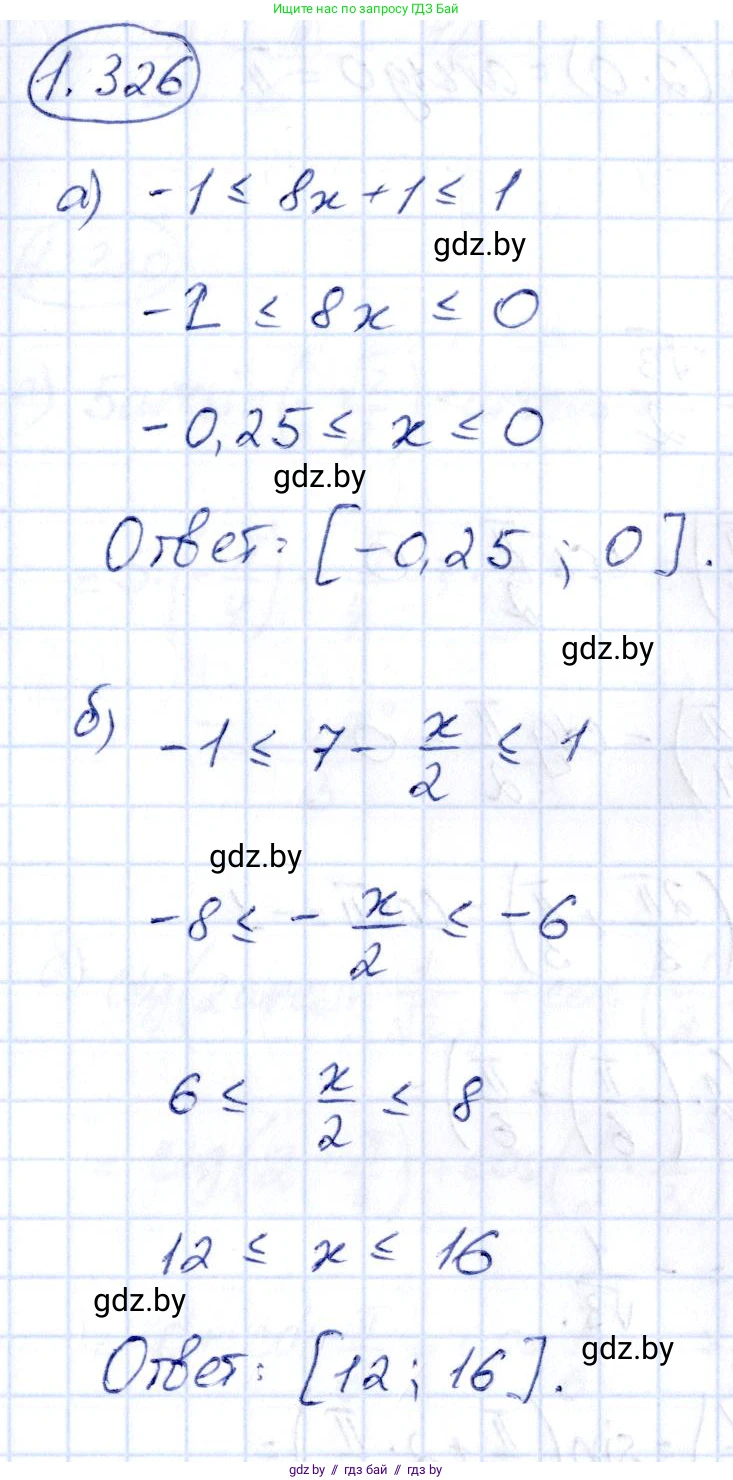 Ищите нас по запросу ГДЗ Бай
1.326
а) -1 ≤ 8x + 1 ≤ 1
gdz.by
-2 ≤ 8x ≤ 0
-0,25 ≤ x ≤ 0
gdz.by
Ответ: [-0,25 ; 0].
gdz.by
б) -1 ≤ 7 - x/2 ≤ 1
gdz.by
-8 ≤ - x/2 ≤ -6
6 ≤ x/2 ≤ 8
12 ≤ x ≤ 16
gdz.by
Ответ: [12 ; 16].
gdz.by
gdz.by // гдз бай // гдз by